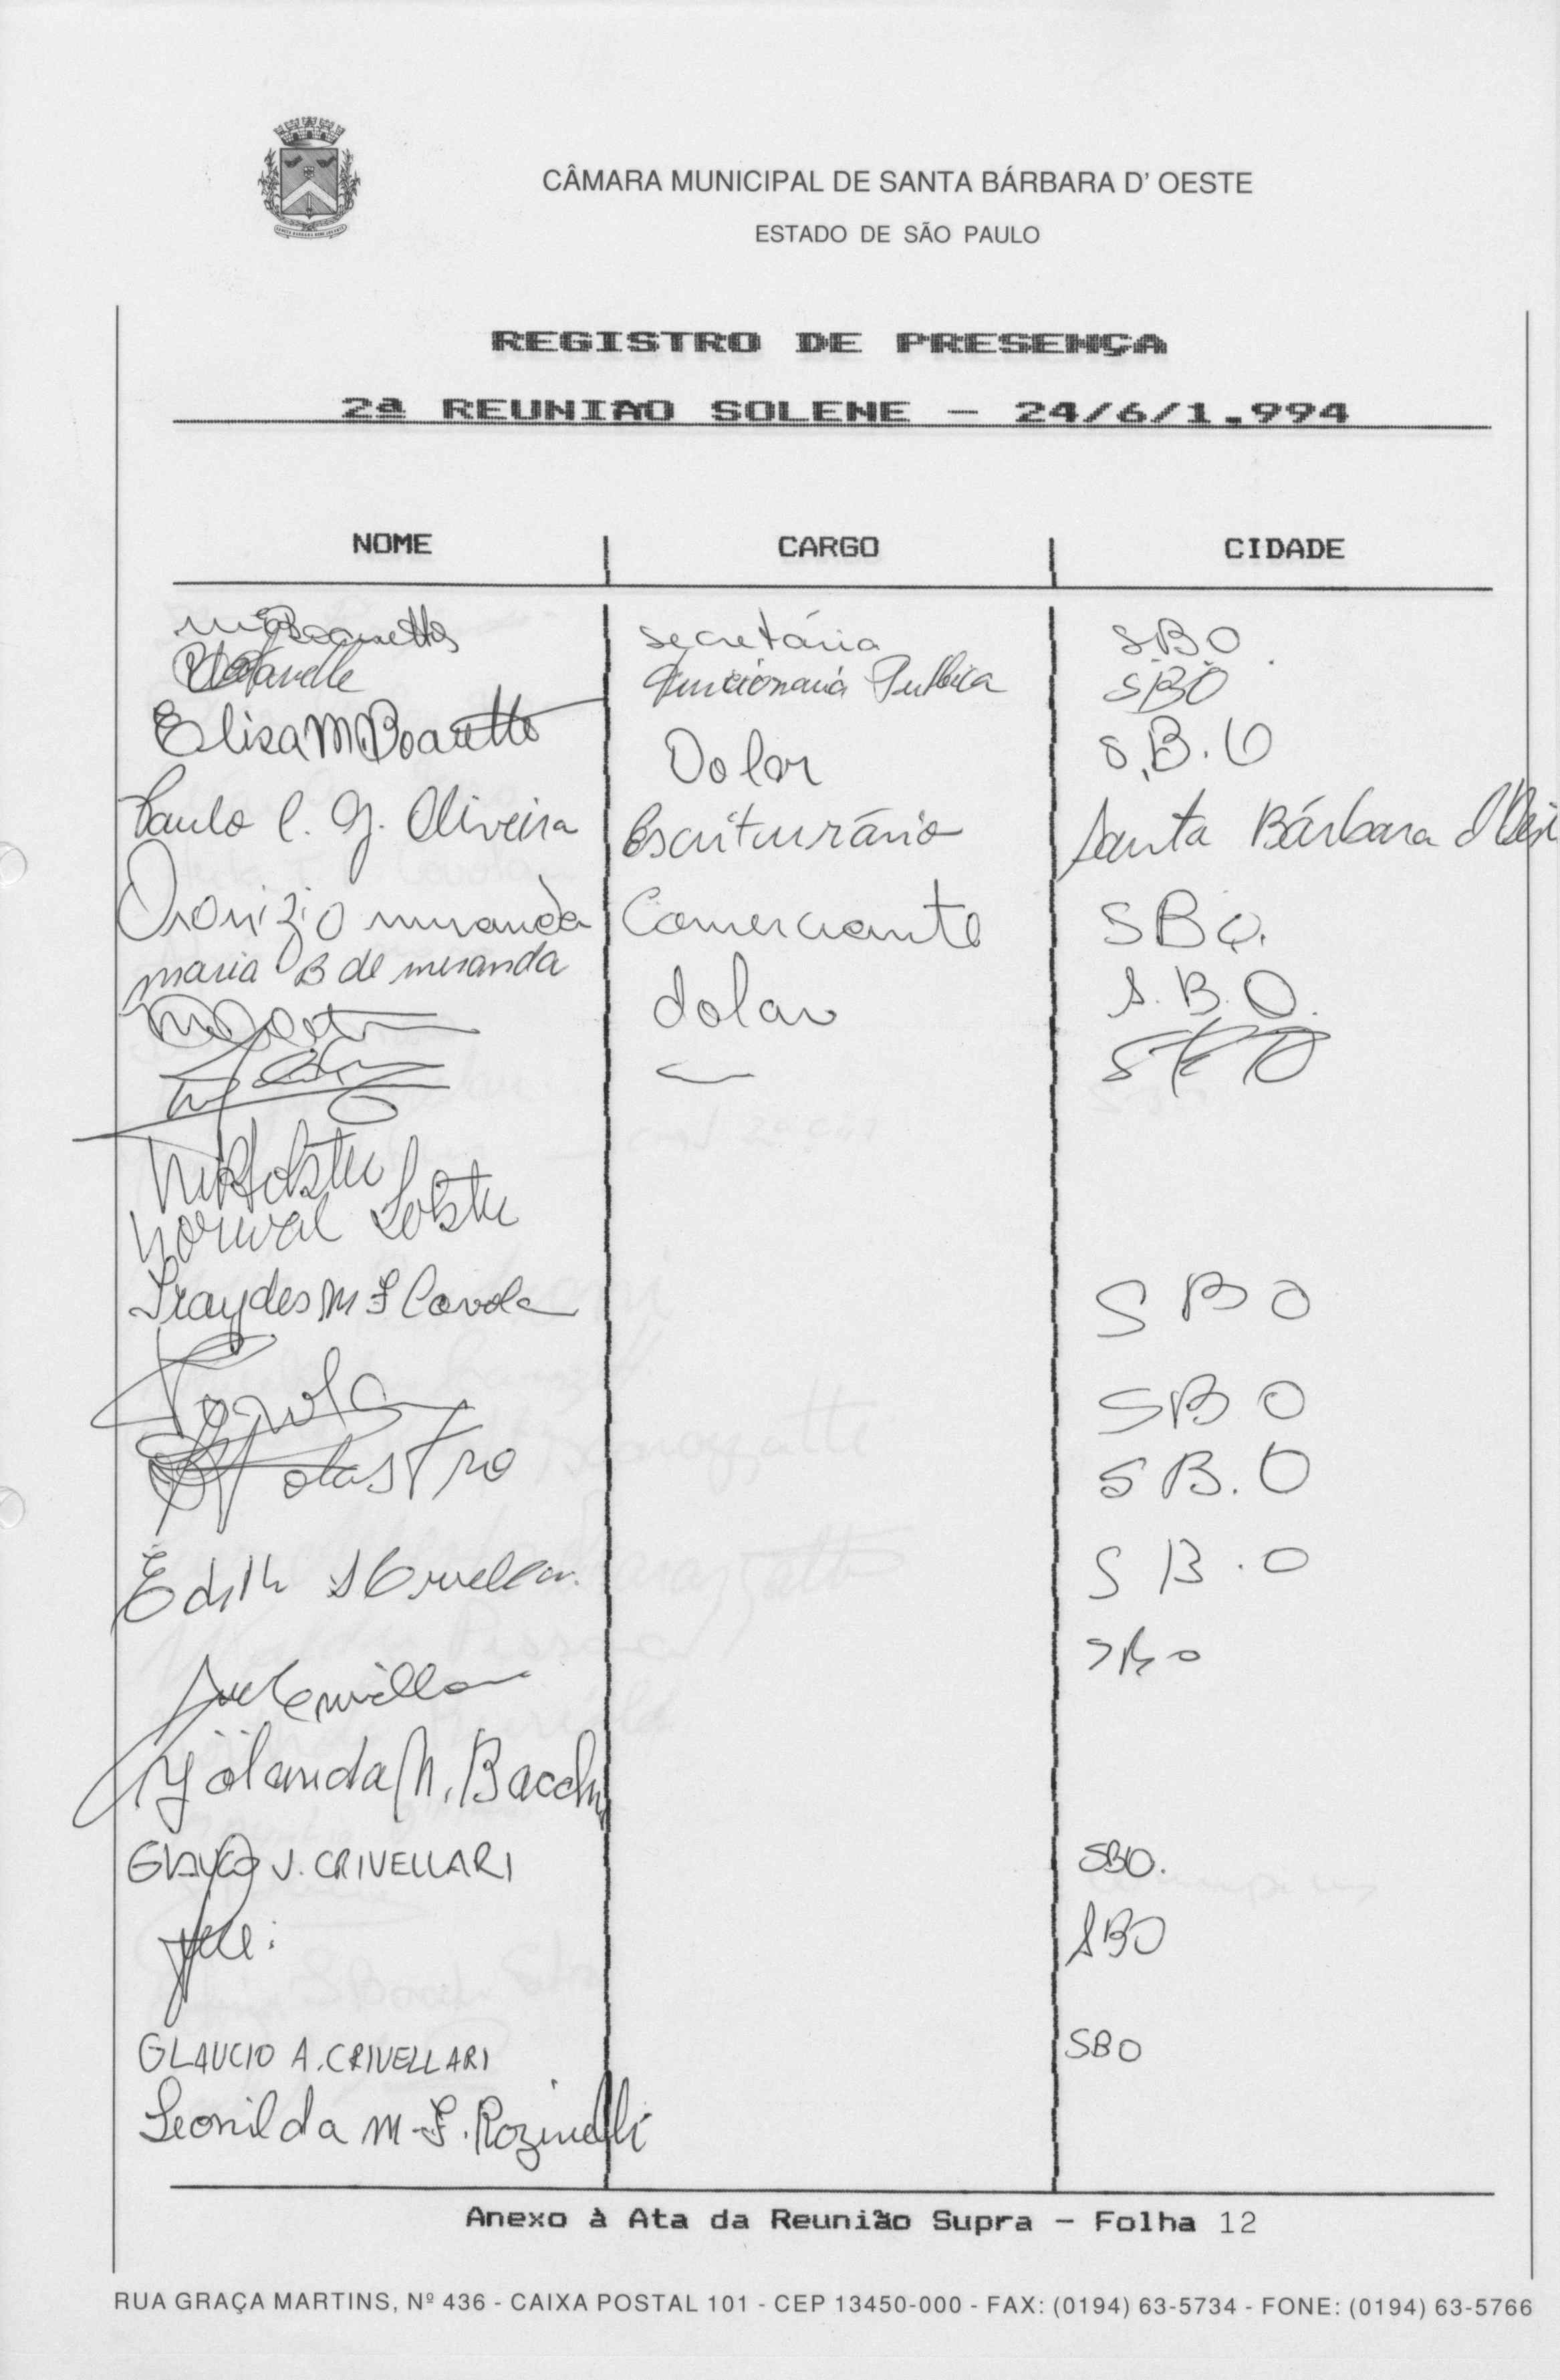 CÂMARA MUNICIPAL DE SANTA BÁRBARA D' OESTE
ESTADO DE SÃO PAULO
REGISTRO DE PRESENÇA
2ª REUNIAO SOLENE - 24/6/1.994
NOME CARGO CIDADE
secretária SBO
Funcionaria Publica SBO
Elisa M Boaretto Dolar S.B.O
Paulo C. G. Oliveira Escriturário Santa Bárbara
Oronizio miranda Comerciante SBO.
maria B de miranda dolar S.B.O.
Norival
Iraydes M F Covola SBO
SBO
SB.O
Edith SB.O
SBO
Yolanda M. Bacchi
GLAUCO J. CRIVELLARI SBO.
SBO
GLAUCIO A. CRIVELLARI SBO
Leonilda M. F. Rozinelli
Anexo à Ata da Reunião Supra - Folha 12
RUA GRAÇA MARTINS, Nº 436 - CAIXA POSTAL 101 - CEP 13450-000 - FAX: (0194) 63-5734 - FONE: (0194) 63-5766